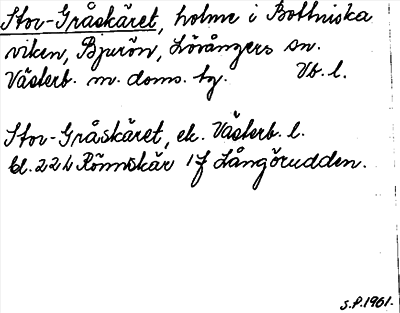 Stor-Gråskäret, holme i Bottniska
viken, Bjurön, Lövångers sn.
Västerb. m. doms. tg. Vb. l.
Stor-Gråskäret, ek. Västerb. l.
bl. 22 b Rönnskär 1 f Långörudden.
S.P. 1961.